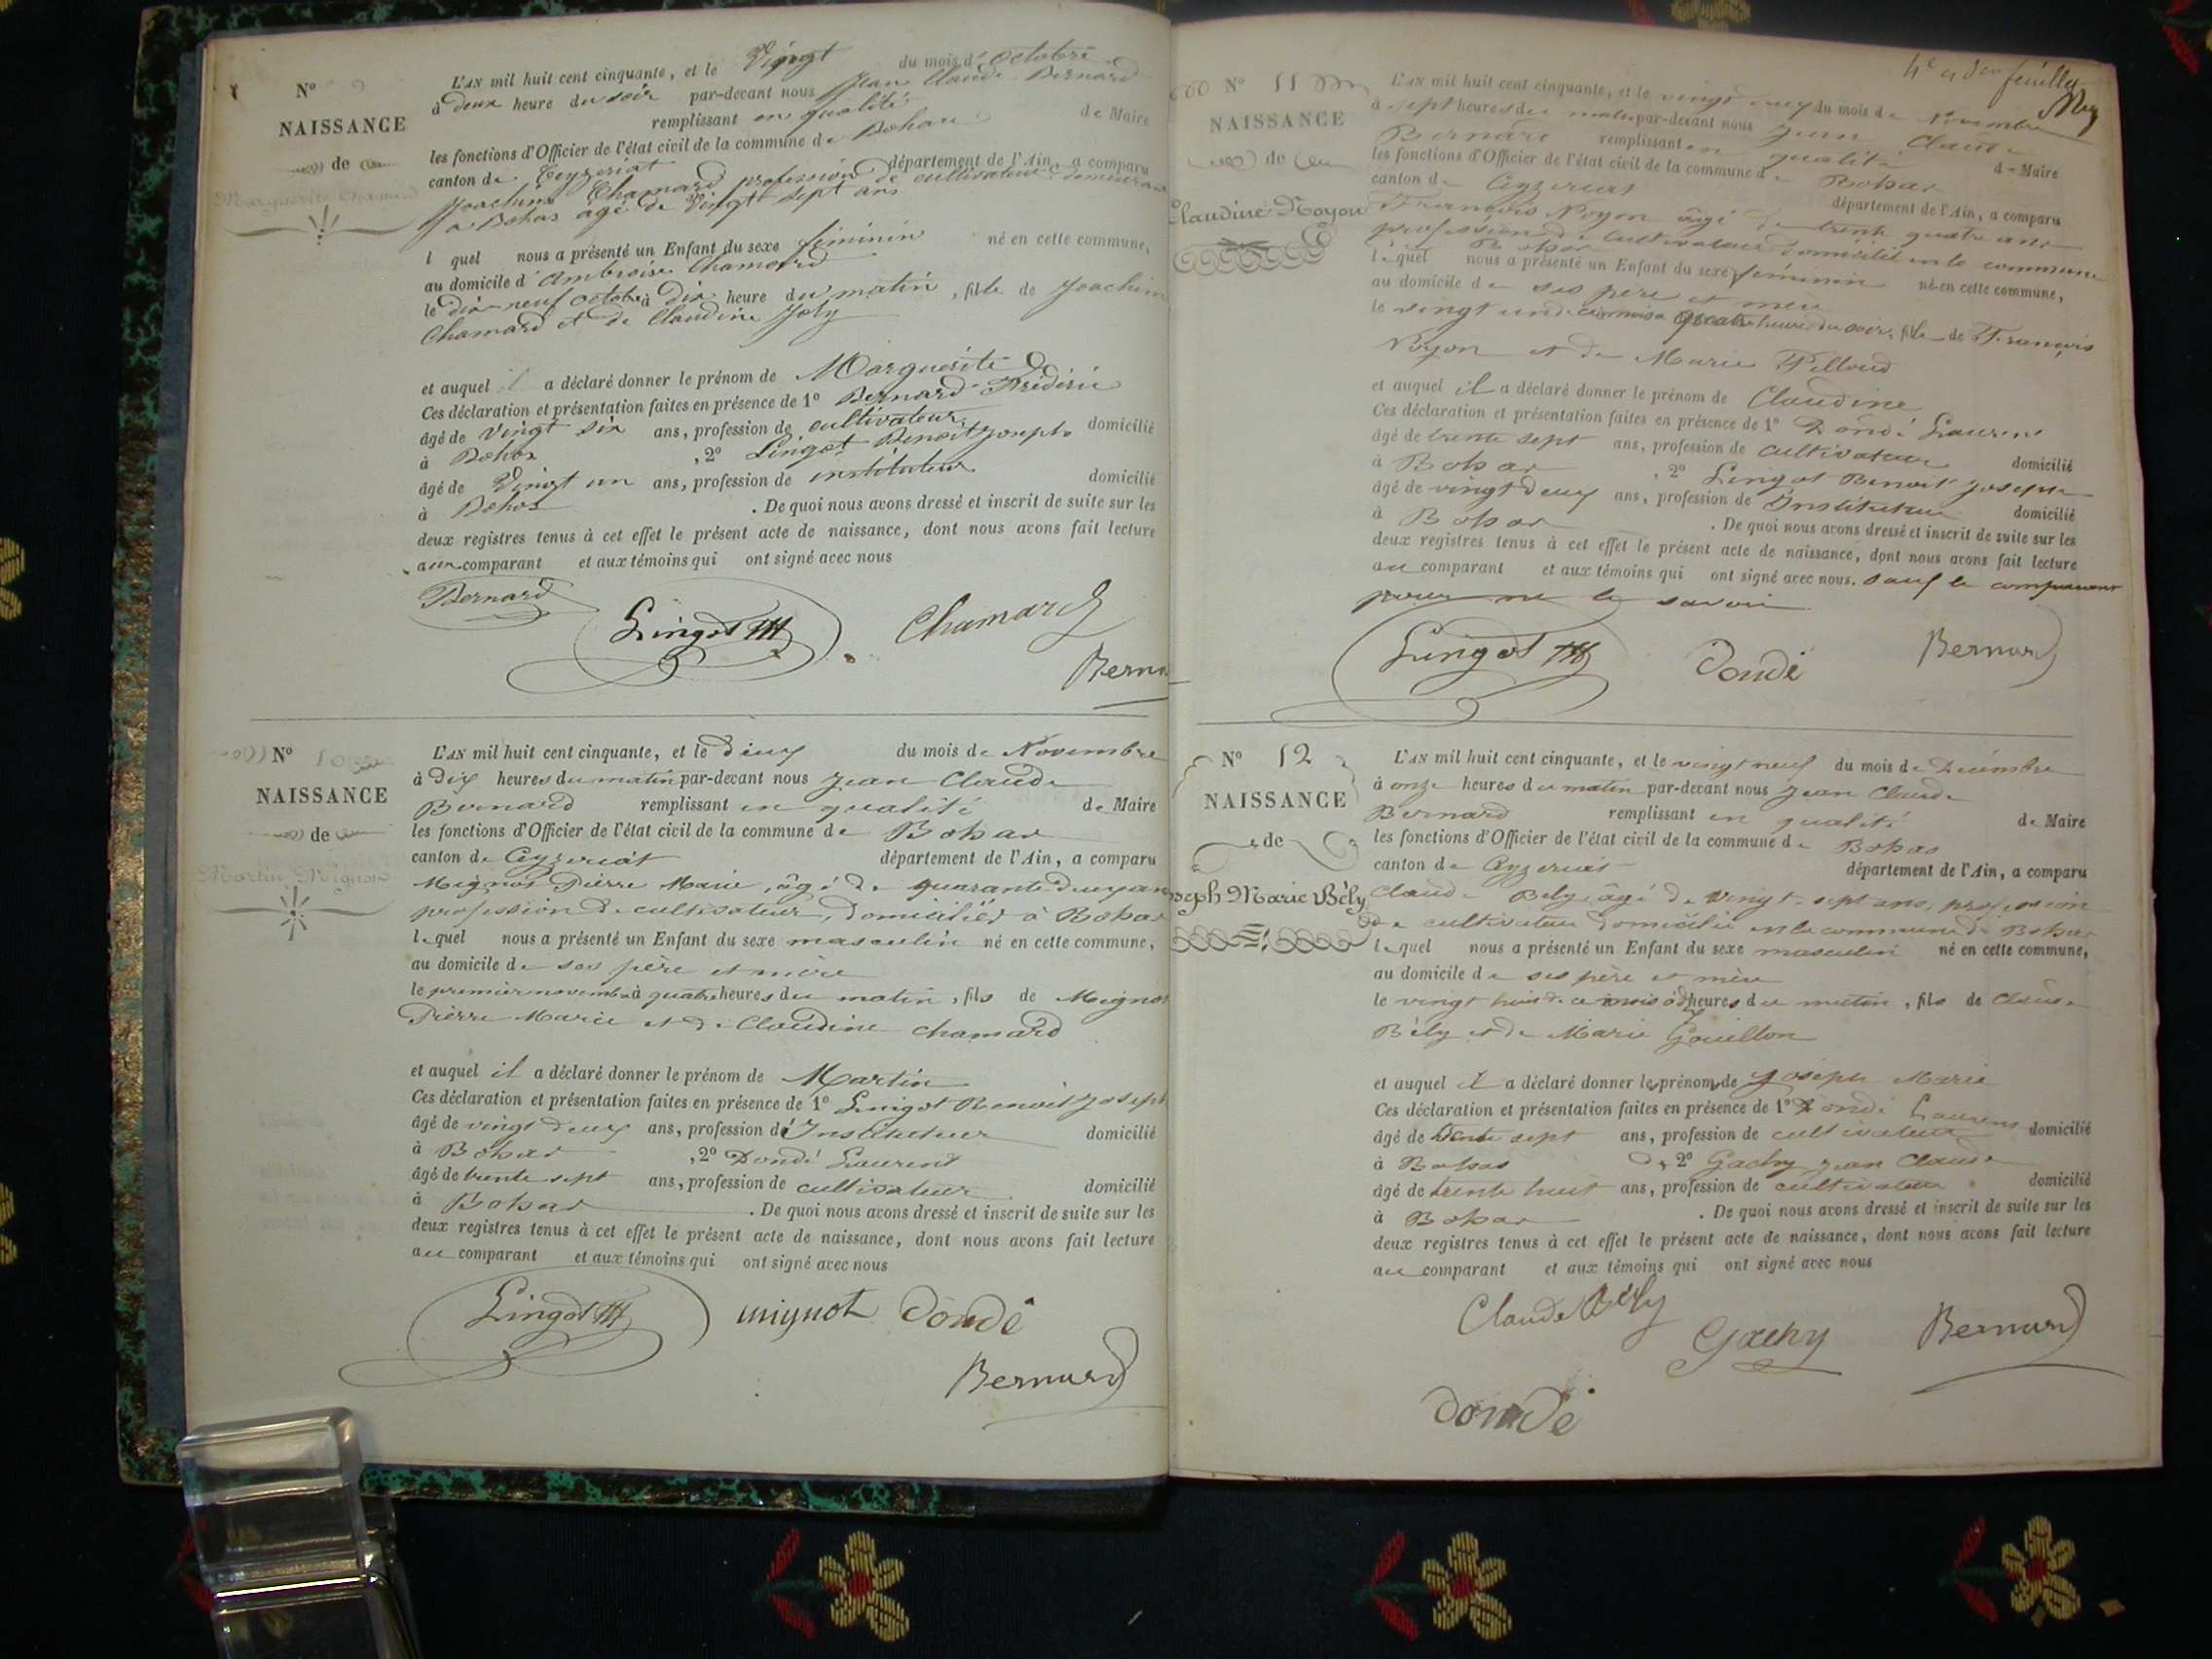 N° 9
NAISSANCE
de
Marguerite Chamard
L'AN mil huit cent cinquante, et le Vingt du mois d'Octobre
à deux heure du soir par-devant nous Jean Claude Bernard
remplissant en qualité de Maire
les fonctions d'Officier de l'état civil de la commune de Bohas
canton de Ceyzeriat département de l'Ain, a comparu
Joachim Chamard profession de cultivateur demeurant
à Bohas âgé de Vingt sept ans
l quel nous a présenté un Enfant du sexe féminin né en cette commune,
au domicile d'Ambroise Chamard
le dix-neuf octobre à dix heure du matin, fille de Joachim
Chamard et de Claudine Joly
et auquel il a déclaré donner le prénom de Marguerite
Ces déclaration et présentation faites en présence de 1° Bernard Frédéric
âgé de Vingt six ans, profession de cultivateur domicilié
à Bohas , 2° Lingot Benoit Joseph
âgé de Vingt un ans, profession de instituteur domicilié
à Bohas . De quoi nous avons dressé et inscrit de suite sur les
deux registres tenus à cet effet le présent acte de naissance, dont nous avons fait lecture
au comparant et aux témoins qui ont signé avec nous
Bernard
Lingot Chamard
Berna
N° 10
NAISSANCE
de
Martin Mignot
L'AN mil huit cent cinquante, et le deux du mois de Novembre
à dix heures du matin par-devant nous Jean Claude
Bernard remplissant en qualité de Maire
les fonctions d'Officier de l'état civil de la commune de Bohas
canton de Ceyzeriat département de l'Ain, a comparu
Mignot Pierre Marie, âgé de quarante deux ans
profession de cultivateur, domicilié à Bohas
lequel nous a présenté un Enfant du sexe masculin né en cette commune,
au domicile de ses père et mère
le premier novembre à quatre heures du matin, fils de Mignot
Pierre Marie et de Claudine Chamard
et auquel il a déclaré donner le prénom de Martin
Ces déclaration et présentation faites en présence de 1° Lingot Benoit Joseph
âgé de vingt deux ans, profession d'Instituteur domicilié
à Bohas , 2° Dondé Laurent
âgé de trente sept ans, profession de cultivateur domicilié
à Bohas . De quoi nous avons dressé et inscrit de suite sur les
deux registres tenus à cet effet le présent acte de naissance, dont nous avons fait lecture
au comparant et aux témoins qui ont signé avec nous
Lingot mignot Dondé
Bernard
4e et der feuillet
N° 11
NAISSANCE
de
Claudine Noyon
L'AN mil huit cent cinquante, et le vingt deux du mois de Novembre
à sept heures du matin par-devant nous Jean Claude
Bernard remplissant en qualité de Maire
les fonctions d'Officier de l'état civil de la commune de Bohas
canton de Ceyzeriat département de l'Ain, a comparu
François Noyon âgé de trente quatre ans
profession de cultivateur domicilié en la commune
de Bohas
lequel nous a présenté un Enfant du sexe féminin né en cette commune,
au domicile de ses père et mère
le vingt un de ce mois à quatre heures du soir, fille de François
Noyon et de Marie Pilloud
et auquel il a déclaré donner le prénom de Claudine
Ces déclaration et présentation faites en présence de 1° Dondé Laurent
âgé de trente sept ans, profession de cultivateur domicilié
à Bohas , 2° Lingot Benoit Joseph
âgé de vingt deux ans, profession de Instituteur domicilié
à Bohas . De quoi nous avons dressé et inscrit de suite sur les
deux registres tenus à cet effet le présent acte de naissance, dont nous avons fait lecture
au comparant et aux témoins qui ont signé avec nous. sauf le comparant
pour ne le savoir
Lingot Dondé Bernard
N° 12
NAISSANCE
de
Joseph Marie Bély
L'AN mil huit cent cinquante, et le vingt neuf du mois de Décembre
à onze heures du matin par-devant nous Jean Claude
Bernard remplissant en qualité de Maire
les fonctions d'Officier de l'état civil de la commune de Bohas
canton de Ceyzeriat département de l'Ain, a comparu
Claude Bely, âgé de Vingt-sept ans, profession
de cultivateur domicilié en la commune de Bohas
lequel nous a présenté un Enfant du sexe masculin né en cette commune,
au domicile de ses père et mère
le vingt huit de ce mois à dix heures du matin, fils de Claude
Bély et de Marie Gouillon
et auquel il a déclaré donner les prénoms de Joseph Marie
Ces déclaration et présentation faites en présence de 1° Dondé Laurent
âgé de trente sept ans, profession de cultivateur domicilié
à Bohas , 2° Gachy Jean Claude
âgé de trente huit ans, profession de cultivateur domicilié
à Bohas . De quoi nous avons dressé et inscrit de suite sur les
deux registres tenus à cet effet le présent acte de naissance, dont nous avons fait lecture
au comparant et aux témoins qui ont signé avec nous
Claude Bély
Gachy Bernard
Dondé